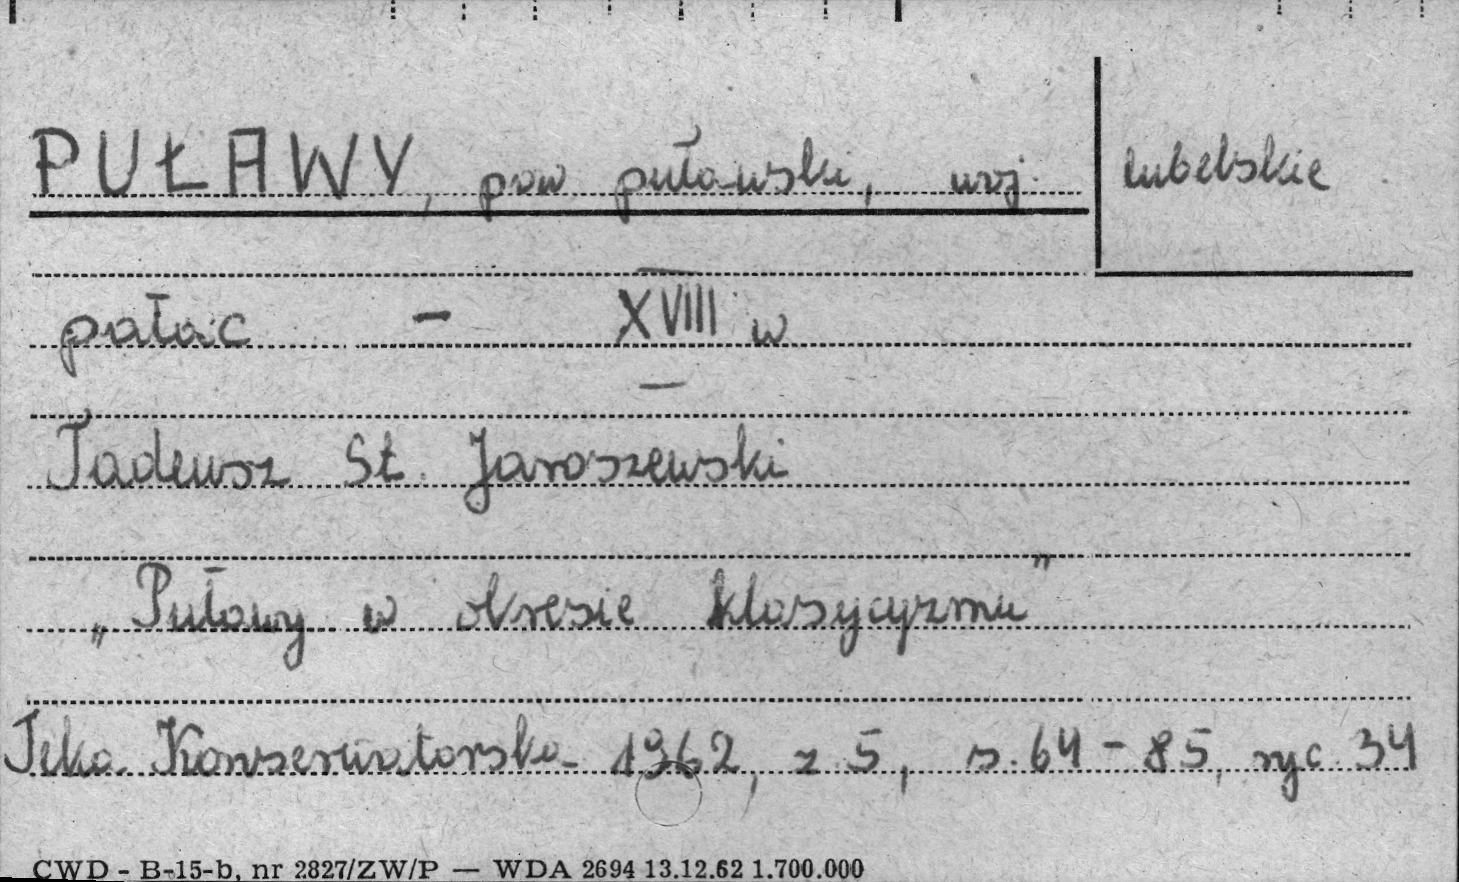 PUŁAWY, pow puławski, woj. lubelskie
pałac - XVIII w
Tadeusz St. Jaroszewski
„Puławy w okresie klasycyzmu"
Teka Konserwatorska 1962, z. 5, s. 64 - 85, ryc. 34
CWD - B-15-b, nr 2827/ZW/P — WDA 2694 13.12.62 1.700.000